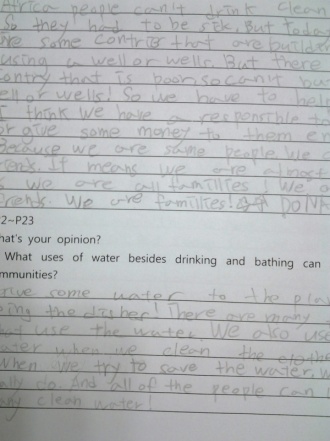 Africa people can't drink clean
So they had to be sick. But today
are some contries that are builds
using a well or wells. But there
ontry that is poor, so can't bu
ell or wells! So we have to hel
I think we have a responsible to
or give some money to them
Because we are same people. We
It means we are almost
s we are all familles! We a
We are familles! DONA
2~P23
hat's your opinion?
What uses of water besides drinking and bathing can
mmunities?
some water to the plan
ing the disher! There are many
hat use the water. We also use
ater when we clean the clothe
When we try to save the water, w
ally do. And all of the people can
any clean water!